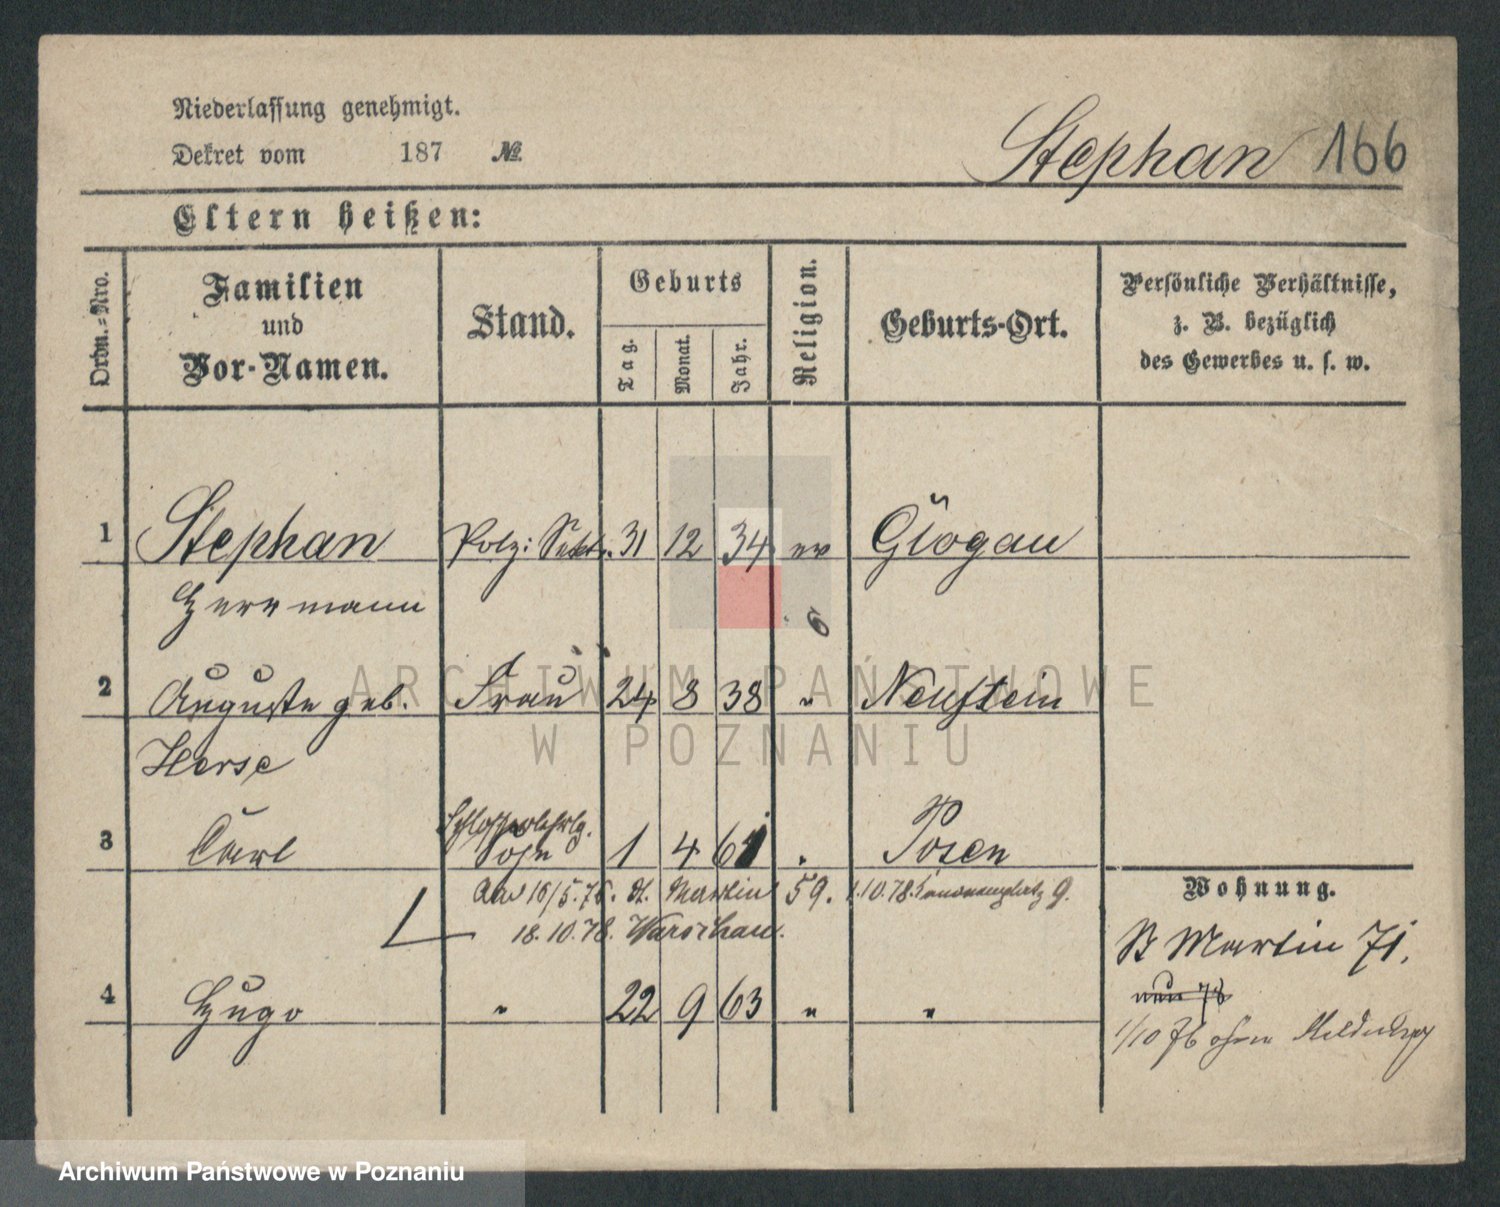 Niederlassung genehmigt.
Dekret vom 187 №.
Stephan 166
Eltern heißen:
Ordn.-Nro.
Familien und Vor-Namen.
Stand.
Geburts
Tag. Monat. Jahr.
Religion.
Geburts-Ort.
Persönliche Verhältnisse, z. B. bezüglich des Gewerbes u. s. w.
1 Stephan Polz: Sekt. 31 12 34 ev Glogau
Herrmann
6
2 Auguste geb. Frau 24 8 38 " Neustein
Herse
Schlosserlehrlg.
3 Carl Sohn 1 4 61 Posen
16/5.76. St. Martin 59. 1.10.78. 9.
18.10.78. Warschau.
4 Hugo " 22 9 63 " "
Wohnung.
St Martin 71.
nun 78
1/10 76 ohne Meldung
ARCHIWUM PAŃSTWOWE
W POZNANIU
Archiwum Państwowe w Poznaniu